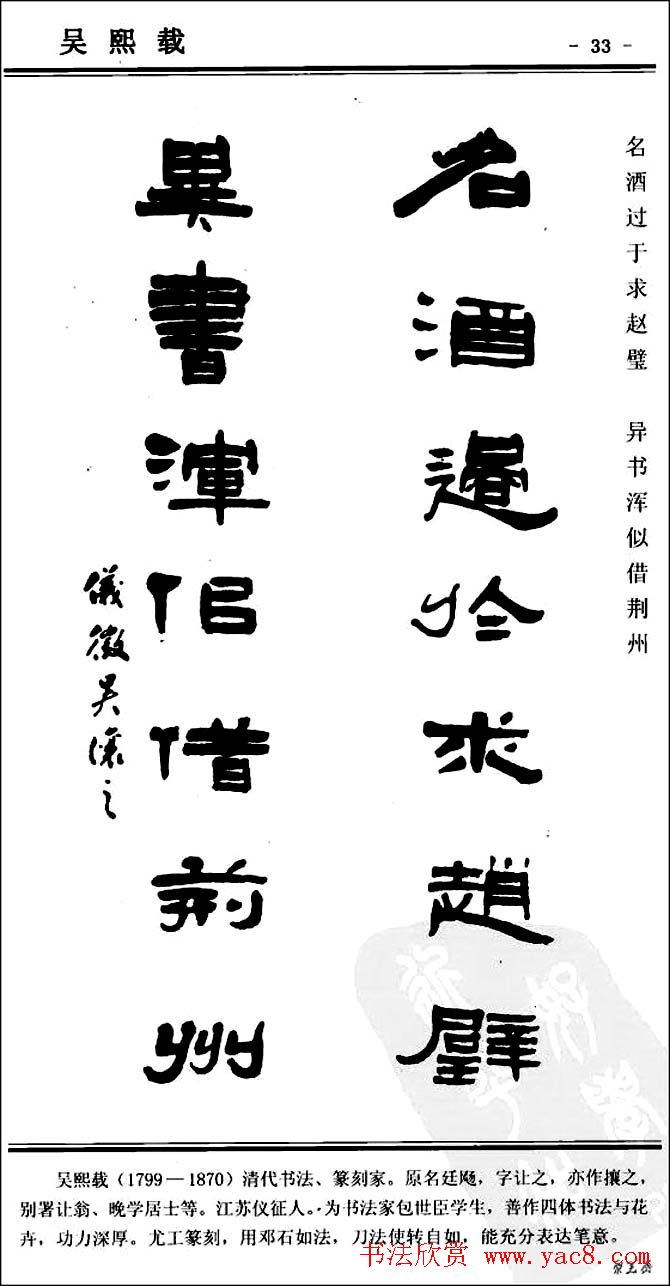 吴熙载
- 33 -
名酒过于求赵璧 异书浑似借荆州
名酒過於求趙璧
異書渾佀借荊州
儀徵吴讓之
吴熙载(1799—1870)清代书法、篆刻家。原名廷飏,字让之,亦作攘之,
别署让翁、晚学居士等。江苏仪征人。为书法家包世臣学生,善作四体书法与花
卉,功力深厚。尤工篆刻,用邓石如法,刀法使转自如,能充分表达笔意。
书法欣赏 www.yac8.com